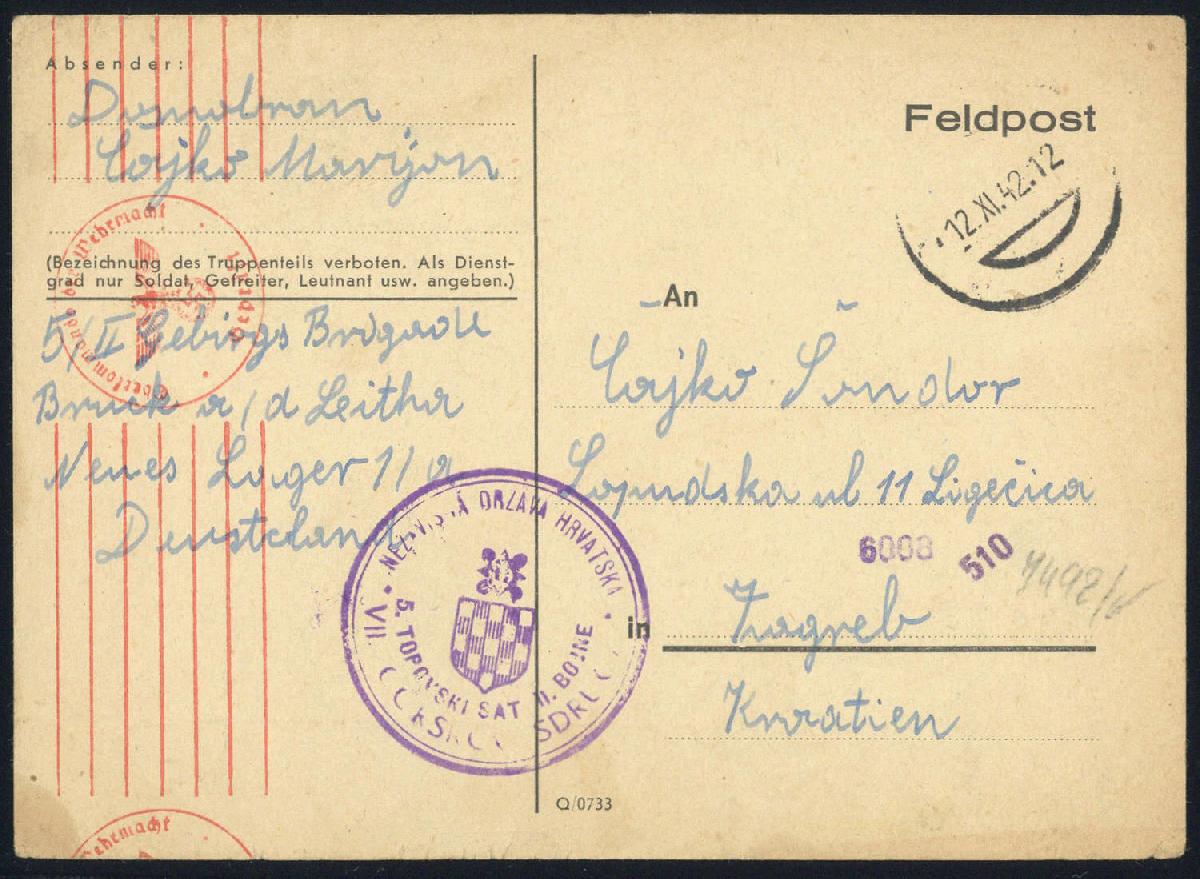 Absender:
Domobran
Cajko Marijan
(Bezeichnung des Truppenteils verboten. Als Dienst-
grad nur Soldat, Gefreiter, Leutnant usw. angeben.)
5/II Gebirgs Brigade
Bruck a/d Leitha
Neues Lager 1/a
Deusteland
Oberkommando der Wehrmacht
Geprüft
Feldpost
12.XI.42.12
An
Cajko Šandor
Lopudska ul 11 Ligečica
6008
510
in
Zagreb
Kroatien
NEZAVISNA DRZAVA HRVATSKA
5. TOPOVSKI SAT II. BOJNE
VII.
Q/0733
Wehrmacht